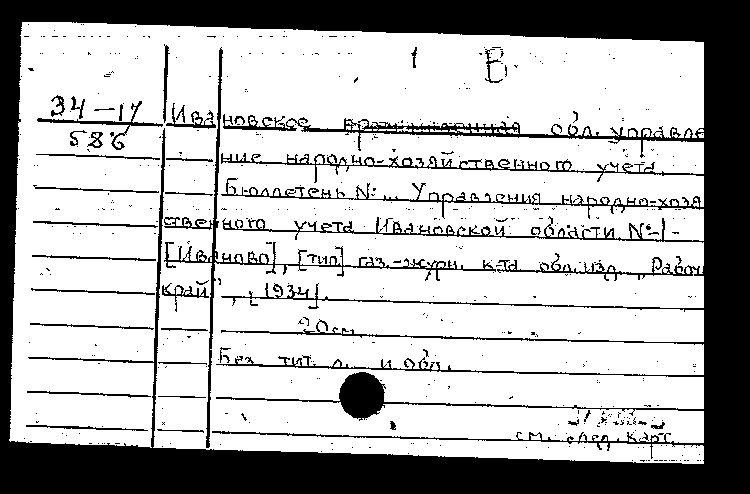 1 В
34-17 Ивановское обл. управле
586
ние народно-хозяйственного учёта.
Бюллетень №... Управления народно-хозя
ственного учета Ивановской области. №1-
[Иваново], [тип] газ.-журн. к-та обл. изд. „Рабоч
край", [1934].
20 см
Без тит. л. и обл.
см. след. карт.